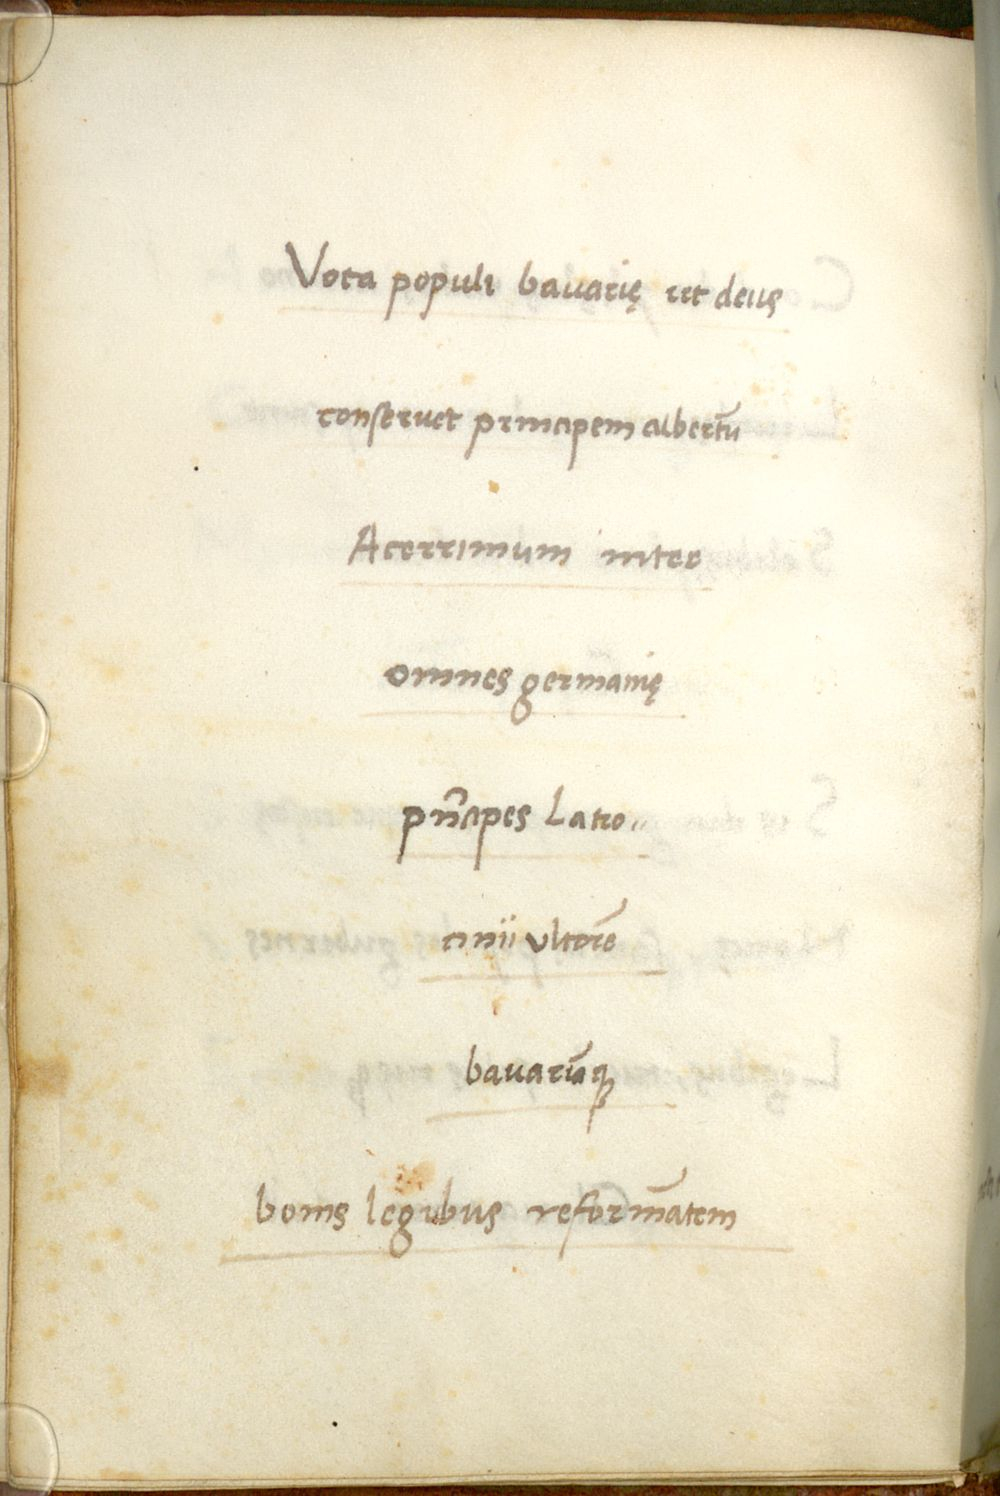 Vota populi bavarię ut deus
conservet principem albertū
Acerrimum inter
omnes germanię
pn̄cipes Latro„
cinii vltorē
bavarūq̨
bonis legibus reform̄atem